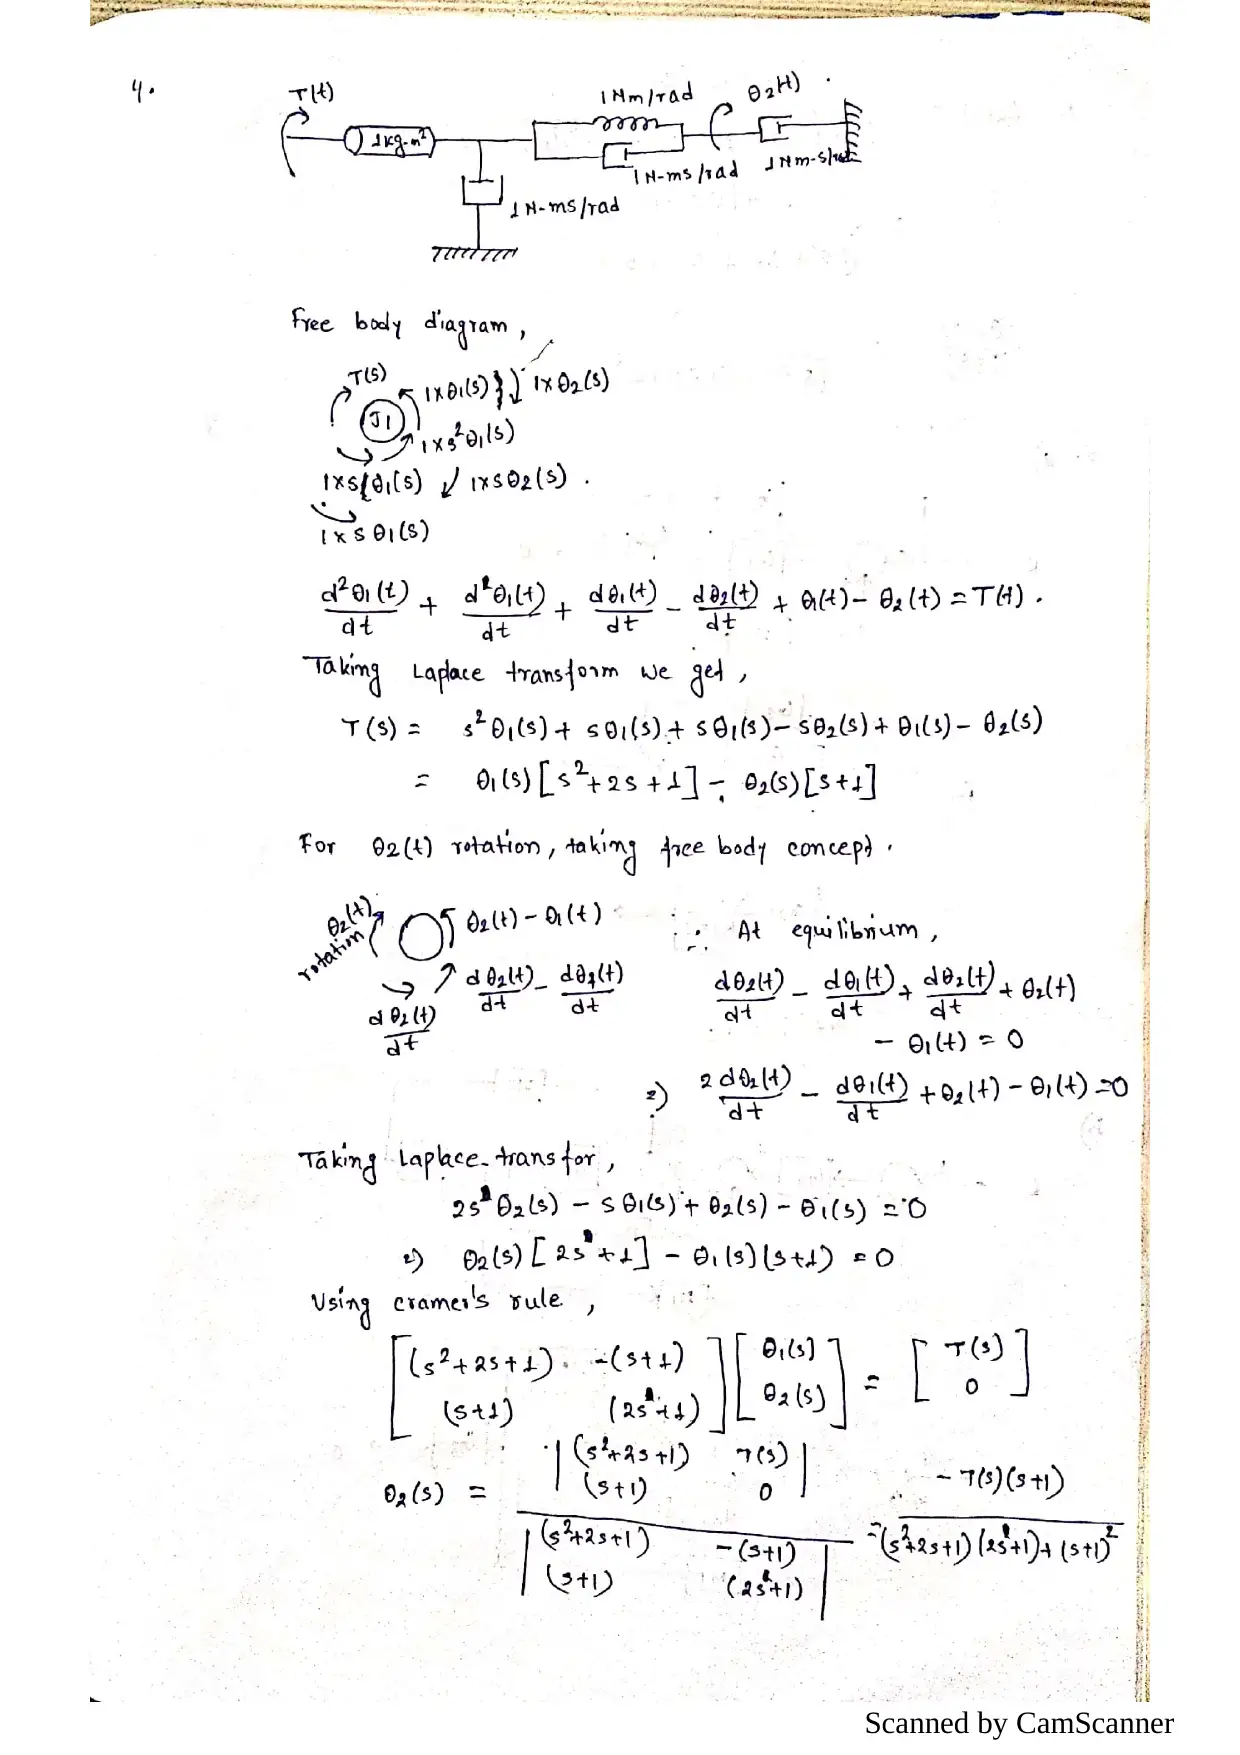 4.
T(t)
1 kg-m²
1 Nm/rad
θ2(t)
1 N-ms/rad
1 Nm-s/rad
1 N-ms/rad
Free body diagram,
T(s)
J1
1×θ1(s)
1×θ2(s)
1×s²θ1(s)
1×sθ1(s)
1×sθ2(s).
1×sθ1(s)
d²θ1(t)/dt + dθ1(t)/dt + dθ1(t)/dt - dθ2(t)/dt + θ1(t) - θ2(t) = T(t).
Taking Laplace transform we get,
T(s) = s²θ1(s) + sθ1(s) + sθ1(s) - sθ2(s) + θ1(s) - θ2(s)
= θ1(s)[s²+2s+1] - θ2(s)[s+1]
For θ2(t) rotation, taking free body concept.
θ2(t) rotation
θ2(t) - θ1(t)
dθ2(t)/dt - dθ1(t)/dt
dθ2(t)/dt
∴ At equilibrium,
dθ2(t)/dt - dθ1(t)/dt + dθ2(t)/dt + θ2(t)
- θ1(t) = 0
=) 2dθ2(t)/dt - dθ1(t)/dt + θ2(t) - θ1(t) = 0
Taking Laplace-transfor,
2sθ2(s) - sθ1(s) + θ2(s) - θ1(s) = 0
=) θ2(s)[2s+1] - θ1(s)(s+1) = 0
Using cramer's rule,
[(s²+2s+1) -(s+1)] [θ1(s)] = [T(s)]
[(s+1) (2s+1)] [θ2(s)] [0]
θ2(s) = |(s²+2s+1) T(s)| - T(s)(s+1)
|(s+1) 0|
|(s²+2s+1) -(s+1)| = (s²+2s+1)(2s+1)+(s+1)²
|(s+1) (2s+1)|
Scanned by CamScanner